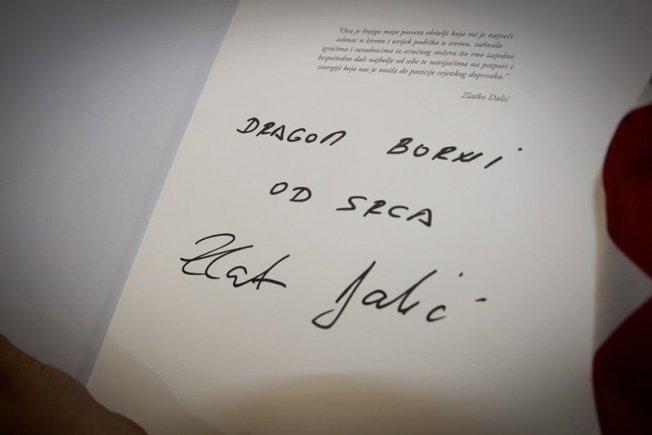 "Ova je knjiga moja posveta obitelji koja mi je najveći
oslonac u životu i uvijek podrška u svemu, zahvala
igračima i suradnicima iz stručnog stožera što smo zajedno
bespoštedno dali najbolje od sebe te navijačima na potpori i
sinergiji koja nas je nosila do pozicije svjetskog doprvaka."
Zlatko Dalić
DRAGOM BORNI
OD SRCA
Zlatko Dalić